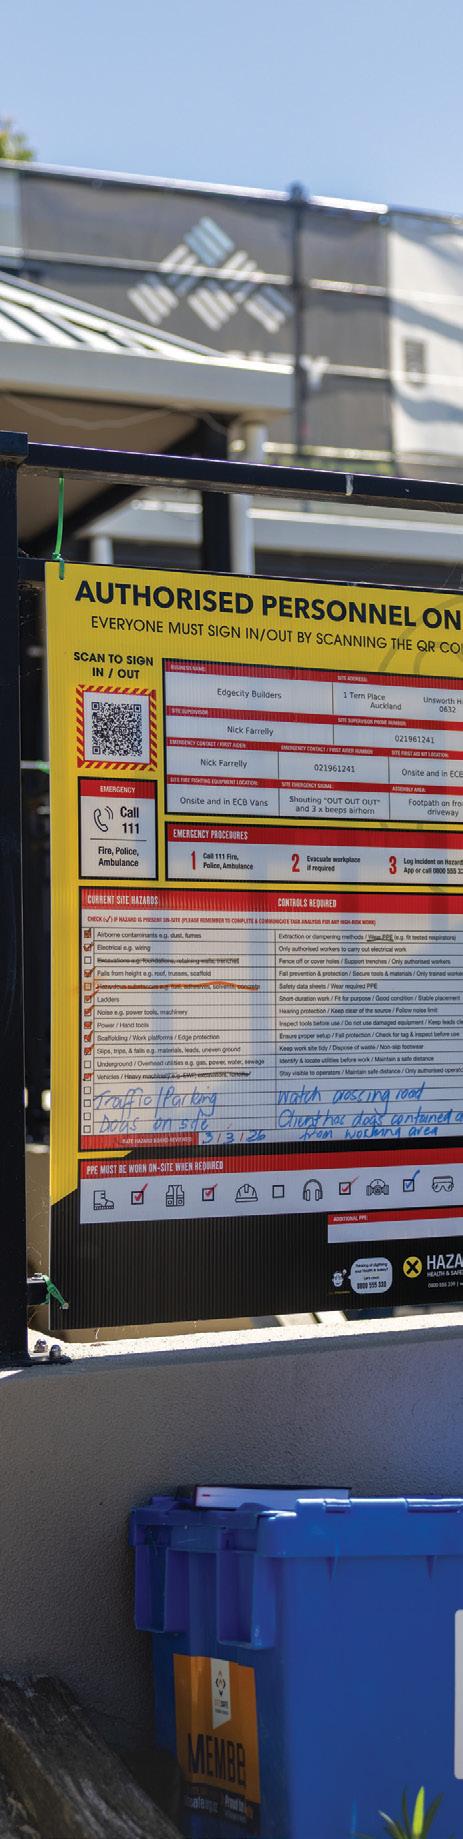 AUTHORISED PERSONNEL ON
EVERYONE MUST SIGN IN/OUT BY SCANNING THE QR CO
SCAN TO SIGN
IN / OUT
BUSINESS NAME:
SITE ADDRESS:
Edgecity Builders
1 Tern Place
Auckland
Unsworth H
0632
SITE SUPERVISOR
SITE SUPERVISOR PHONE NUMBER:
Nick Farrelly
021961241
EMERGENCY CONTACT / FIRST AIDER:
EMERGENCY CONTACT / FIRST AIDER NUMBER
SITE FIRST AID KIT LOCATION:
Nick Farrelly
021961241
Onsite and in ECB
SITE FIRE FIGHTING EQUIPMENT LOCATION:
SITE EMERGENCY SIGNAL:
ASSEMBLY AREA:
Onsite and in ECB Vans
Shouting "OUT OUT OUT"
and 3 x beeps airhorn
Footpath on fro
driveway
EMERGENCY
Call
111
Fire, Police,
Ambulance
EMERGENCY PROCEDURES
1 Call 111 Fire,
Police, Ambulance
2 Evacuate workplace
if required
3 Log incident on Hazard
App or call 0800 555 33
CURRENT SITE HAZARDS
CONTROLS REQUIRED
CHECK (✓) IF HAZARD IS PRESENT ON-SITE (PLEASE REMEMBER TO COMPLETE & COMMUNICATE TASK ANALYSIS FOR ANY HIGH-RISK WORK)
Airborne contaminants e.g. dust, fumes
Extraction or dampening methods / Wear PPE (e.g. fit tested respirators)
Electrical e.g. wiring
Only authorised workers to carry out electrical work
Excavations e.g. foundations, retaining walls, trenches
Fence off or cover holes / Support trenches / Only authorised workers
Falls from height e.g. roof, trusses, scaffold
Fall prevention & protection / Secure tools & materials / Only trained worke
Hazardous substances e.g. fuel, adhesives, solvents, concrete
Safety data sheets / Wear required PPE
Ladders
Short-duration work / Fit for purpose / Good condition / Stable placement
Noise e.g. power tools, machinery
Hearing protection / Keep clear of the source / Follow noise limit
Power / Hand tools
Inspect tools before use / Do not use damaged equipment / Keep leads cle
Scaffolding / Work platforms / Edge protection
Ensure proper setup / Fall protection / Check for tag & inspect before use
Slips, trips, & falls e.g. materials, leads, uneven ground
Keep work site tidy / Dispose of waste / Non-slip footwear
Underground / Overhead utilities e.g. gas, power, water, sewage
Identify & locate utilities before work / Maintain a safe distance
Vehicles / Heavy machinery e.g. EWP, excavators, forklifts
Stay visible to operators / Maintain safe distance / Only authorised operato
Traffic / Parking
Watch crossing road
Dogs on site
Client has dogs contained a
from working area
DATE HAZARD BOARD REVIEWED: 3 / 3 / 26
PPE MUST BE WORN ON-SITE WHEN REQUIRED
ADDITIONAL PPE:
0800 555 339
HAZA
HEALTH & SAFE
MEMBE